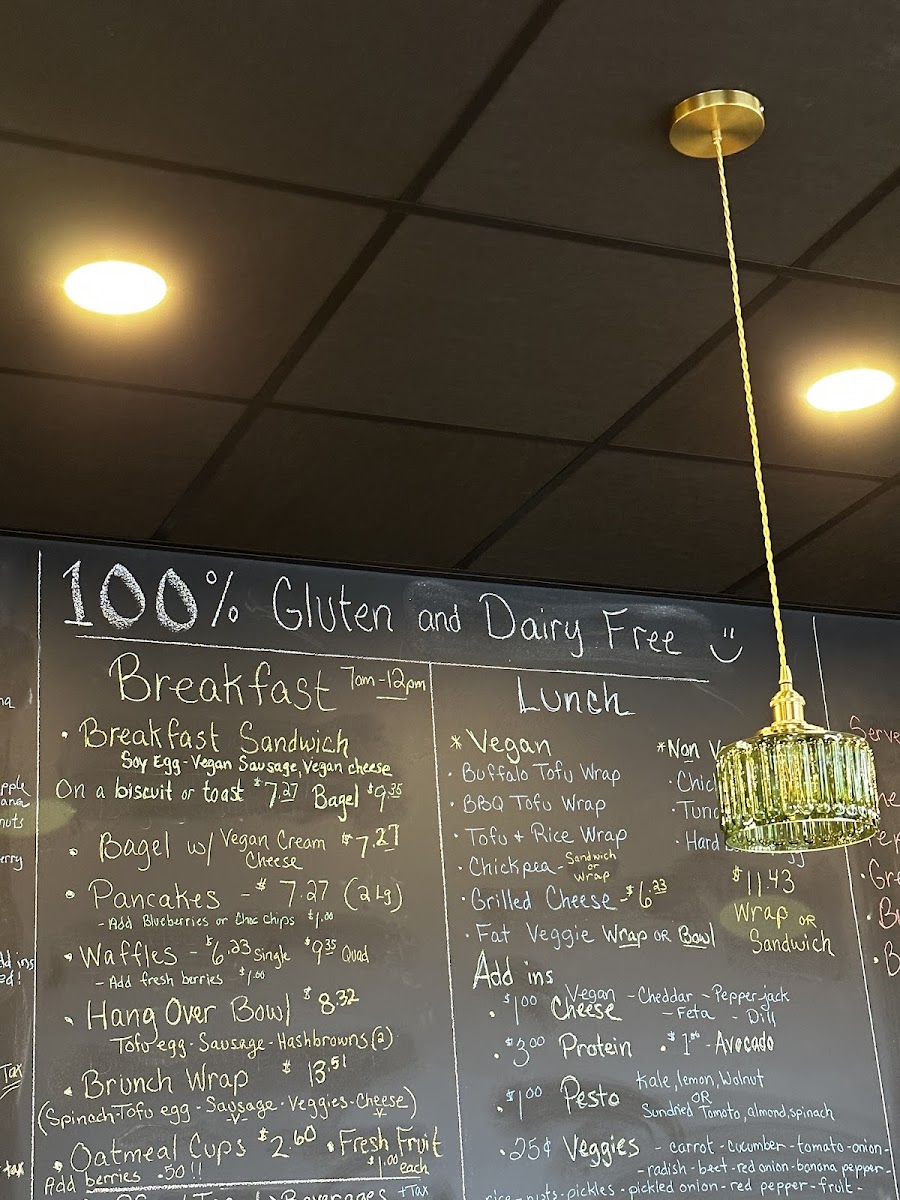 100% Gluten and Dairy Free
Breakfast 7am-12pm
• Breakfast Sandwich
Soy Egg - Vegan Sausage, Vegan cheese
On a biscuit or toast $7.27 Bagel $9.35
• Bagel w/ Vegan Cream Cheese $7.27
• Pancakes - $7.27 (2 Lg)
- Add Blueberries or Choc Chips $1.00
• Waffles - $6.23 Single $9.35 Quad
- Add fresh berries $1.00
• Hang Over Bowl $8.32
Tofu egg - Sausage - Hashbrowns (2)
• Brunch Wrap $13.51
(Spinach-Tofu egg - Sausage - Veggies - Cheese)
V V
• Oatmeal Cups $2.60 • Fresh Fruit
Add berries .50!! $1.00 each
Beverages + Tax
Lunch
* Vegan
• Buffalo Tofu Wrap
• BBQ Tofu Wrap
• Tofu + Rice Wrap
• Chickpea - Sandwich or Wrap
• Grilled Cheese - $6.23
• Fat Veggie Wrap or Bowl
* Non
• Hard
$11.43
Wrap or
Sandwich
Add ins
• $1.00 Vegan Cheese - Cheddar - Pepperjack
- Feta - Dill
• $3.00 Protein • $1.00 - Avocado
• $1.00 Pesto Kale, lemon, Walnut
OR
Sundried Tomato, almond, spinach
• 25¢ Veggies - carrot - cucumber - tomato - onion -
- radish - beet - red onion - banana pepper -
rice - nuts - pickles - pickled onion - red pepper - fruit -
nuts
Tax
tax